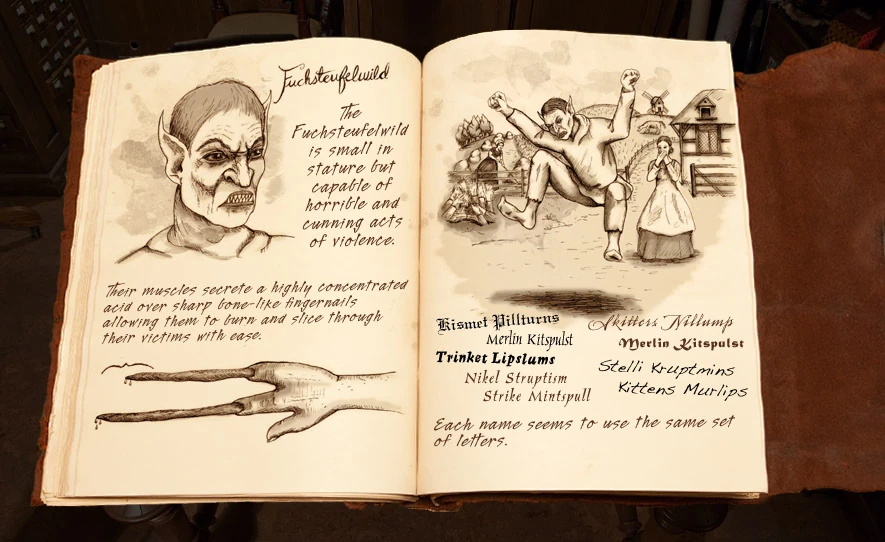 Fuchsteufelwild
The
Fuchsteufelwild
is small in
stature but
capable of
horrible and
cunning acts
of violence.
Their muscles secrete a highly concentrated
acid over sharp bone-like fingernails
allowing them to burn and slice through
their victims with ease.
Kismet Pillturns
Merlin Kitspulst
Trinket Lipslums
Nikel Struptism
Strike Mintspull
Skitters Nillump
Merlin Kitspulst
Stelli Kruptmins
Kittens Murlips
Each name seems to use the same set
of letters.